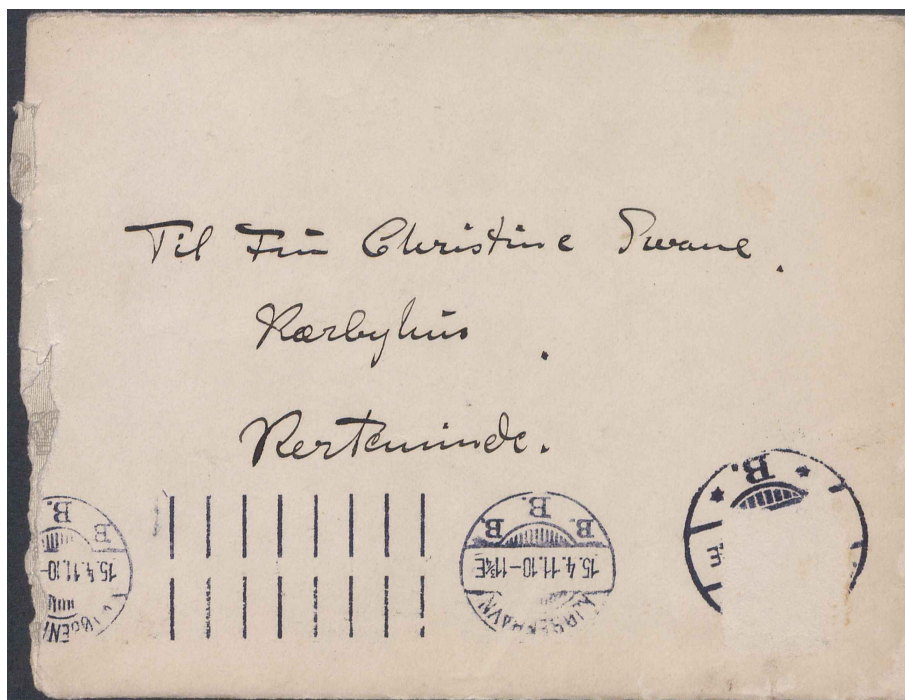 Til Fru Christine Swane.
Kærbyhus.
Kerteminde.
B. B. B.
15.4.11.10-11¾E
KJØBENHAVN
B. B.
15.4.11.10
* B. *